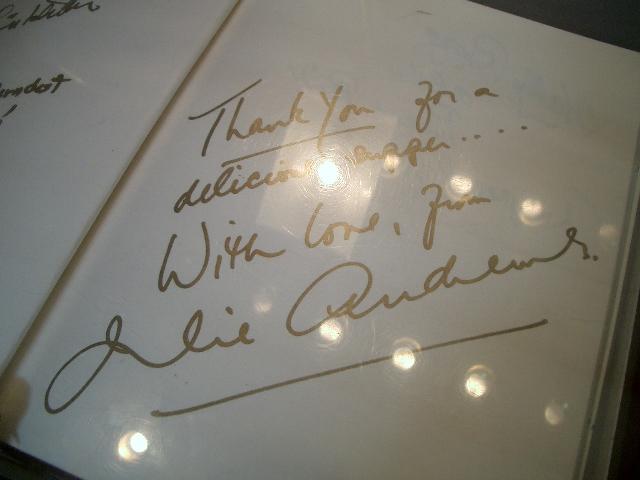 Thank You for a
delicious supper....
With love, from
Julie Andrews.